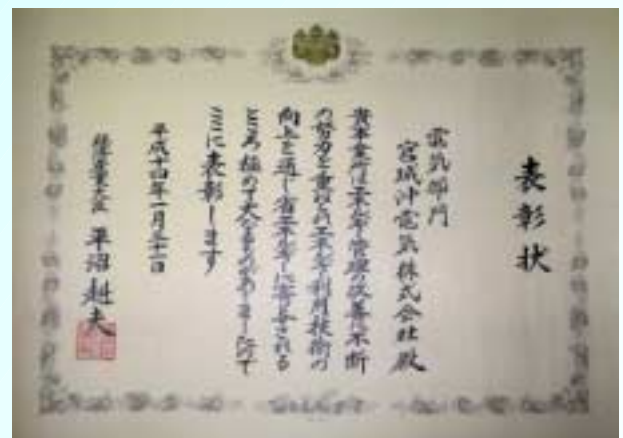 表彰状
電気部門
宮城沖電気株式会社殿
貴事業所はエネルギー管理の改善に不断
の努力を重ねられエネルギー利用技術の
向上を通じ省エネルギーに寄与される
ところ極めて大なるものがありましたので
ここに表彰します
平成十四年一月三十一日
経済産業大臣 平沼赳夫